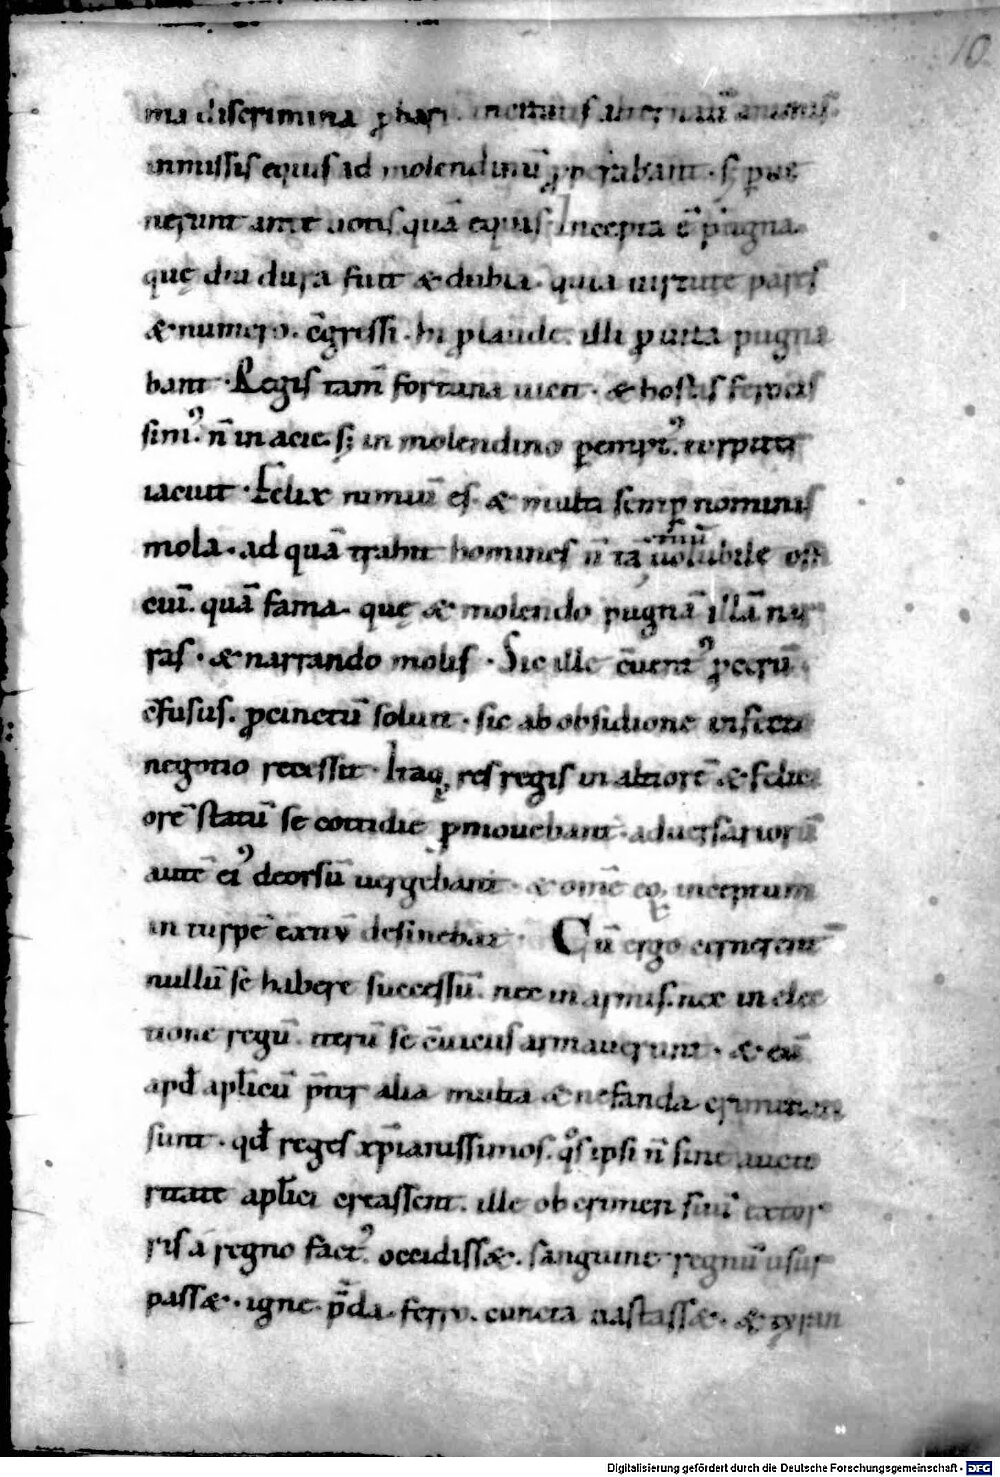 ma discrimina ꝓbari. incitatis alternatī animis
inmissis equis ad molendinū ꝓpabant. sꝫ ꝑue
nerunt ante uotis quā equis. Incepta ē pugna
quę diu dura fuit & dubia. quia uirtute pares
& numero. c̄gressi. hi ꝓ laude. illi ꝓ uita pugna
bant. Regis tam̄ fortuna uicit. & hostis ferocis
simꝰ. n̄ in acie. sꝫ in molendino ꝑemptꝰ. turpiter
iacuit. Felix nimiū es & multi semꝑ nominis
mola. ad quā trahit homines n̄ tā uolubile offi
ciū. quā fama. quę & molendo pugnā illā nar
ras. & narrando molis. Sic ille c̄uentꝰ ꝓcerū
c̄fusus. ꝓcinctū soluit. sic ab obsidione infecto
negotio recessit. Itaqꝫ res regis in altiorē & felici
orē statū se cottidie ꝓmouebant. aduersariorū
autē eiꝰ deorsū uergebant. & om̄e eoꝝ inceptum
in turpē exitū desinebat. Cū ergo cernerent
nullū se habere successū. nec in armis. nec in elec
tione regū. iterū se c̄uicus armauerunt. & eū
apd̄ aplicū p̄ter alia multa & nefanda criminati
sunt. qd̄ reges xp̄ianissimos. qͦs ipsi n̄ sine aucto
ritate aplici creassent. ille ob crimen suū extor
ris a regno factꝰ. occidissæ. sanguine regnū usur
passæ. igne. p̄da. ferro. cuncta uastassæ. & tyran
10
Digitalisierung gefördert durch die Deutsche Forschungsgemeinschaft - DFG